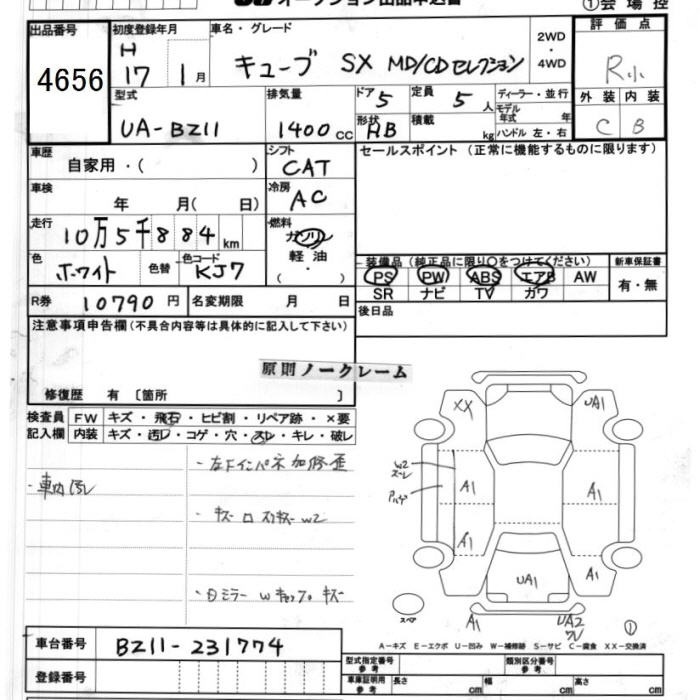 オークション出品申込書
①会場控
出品番号
4656
初度登録年月
H
17 1月
車名・グレード
キューブ SX MD/CDセレクション
2WD
・
4WD
評価点
R小
外装 内装
C B
型式
UA-BZ11
排気量
1400cc
ドア 5
定員 5人
形状 HB
積載 kg
ディーラー・並行
モデル年式 年
ハンドル 左・右
車歴
自家用・( )
シフト
CAT
セールスポイント (正常に機能するものに限ります)
車検
年 月( 日)
冷房
AC
走行
10万5千884km
燃料
ガソリン
軽油
( ・ )
色
ホワイト 色替
色コード
KJ7
装備品(純正品に限り○をつけてください)
PS PW ABS エアB AW
SR ナビ TV ガワ
新車保証書
有・無
R券 10790円
名変期限 月 日
後日品
注意事項申告欄(不具合内容等は具体的に記入して下さい)
原則ノークレーム
修復歴 有〔箇所 〕
検査員
記入欄
FW キズ・飛石・ヒビ割・リペア跡・×要
内装 キズ・汚レ・コゲ・穴・スレ・キレ・破レ
・車内汚レ
・左Fインパネ加修歪
W2
XX
UA1
A1
A1
A1
A1
A1
UA1
A1
UA2
スペア
①
A-キズ E-エクボ U-凹み W-補修跡 S-サビ C-腐食 XX-交換済
車台番号 BZ11-231774
登録番号
型式指定番号
参考
類別区分番号
参考
車庫証明用
参考
長さ cm
幅 cm
高さ cm